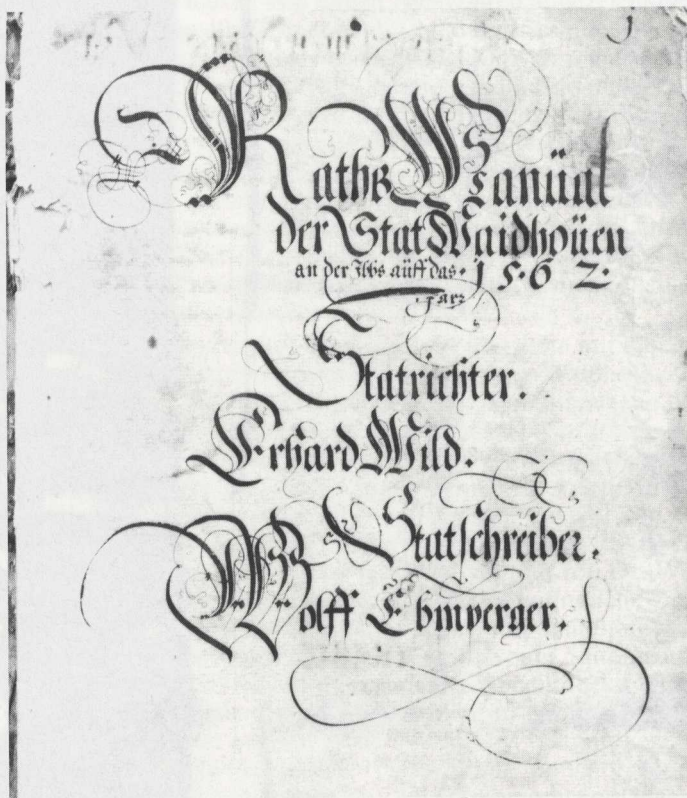 Raths Manüal
der Stat Waidhoüen
an der Ybs aüff das 1562.
Jar
Statrichter.
Erhard Wild.
Statschreiber.
Wolff Ebmperger.